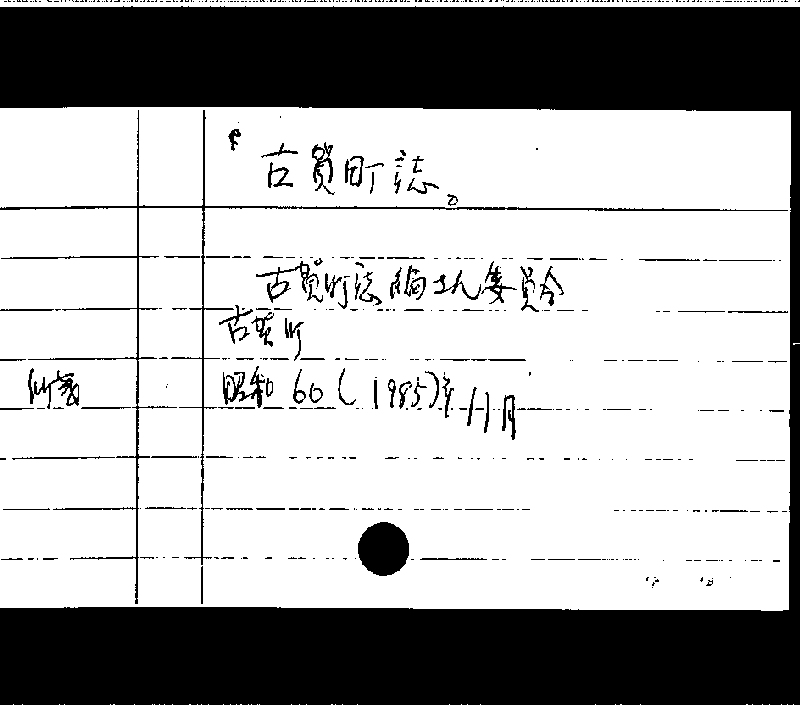 古賀町誌。
古賀町誌編さん委員会
古賀町
昭和60(1985)年11月